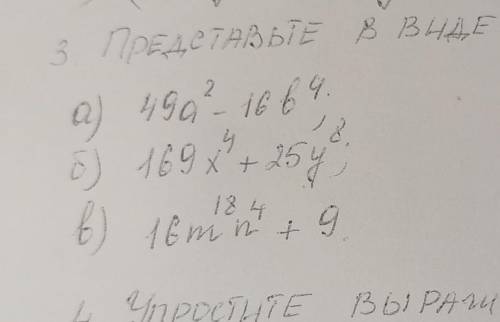 3 ПРЕДСТАВЬТЕ В ВИДЕ
а) 49a² - 16b⁴;
б) 169x⁴ + 25y⁸;
в) 16m¹⁸n⁴ + 9.
4 УПРОСТИТЕ ВЫРАЖ